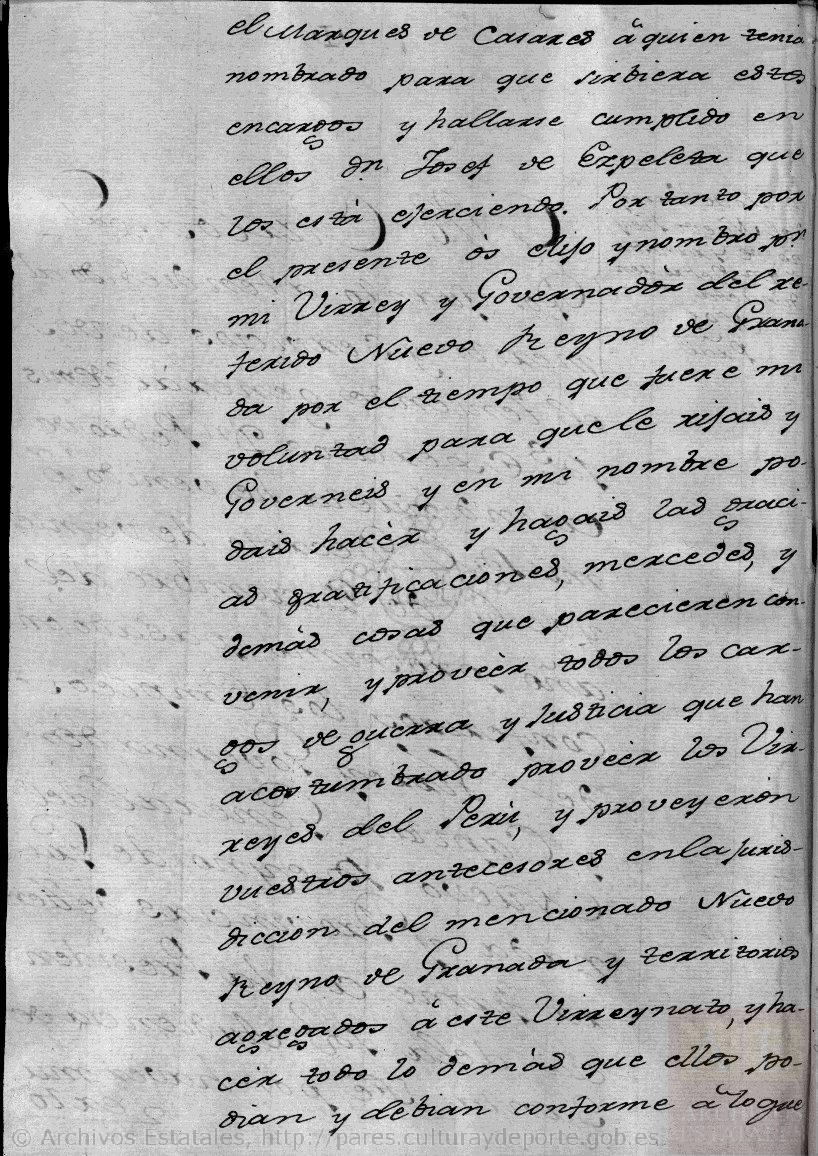 el Marques de Casares â quien tenia
nombrado para que sirbiera estos
encargos y hallarse cumplido en
ellos Dn. Josef de Ezpeleta que
los està ejerciendo. Por tanto por
el presente òs elijo y nombro pr.
mi Virrey y Governadòr del re-
ferido Nùevo Reyno de Grana-
da por el tiempo que fuere mi
voluntad para que le rijais y
Governeis y en mi nombre po-
dais hacèr y hagais las graci-
as gratificaciones, mercedes, y
demàs cosas que parecieren con-
venir, y proveèr todos los car-
gos de guerra y Justicia que han
acostumbrado proveèr los Vir-
reyes del Perù, y proveyeròn
vuestros antecesores en la Juris-
diccion del mencionado Nùevo
Reyno de Granada y territorios
agregados â este Virreynato, y ha-
cèr todo lo demàs que ellos po-
dian y debian conforme â lo que
© Archivos Estatales, http://pares.culturaydeporte.gob.es